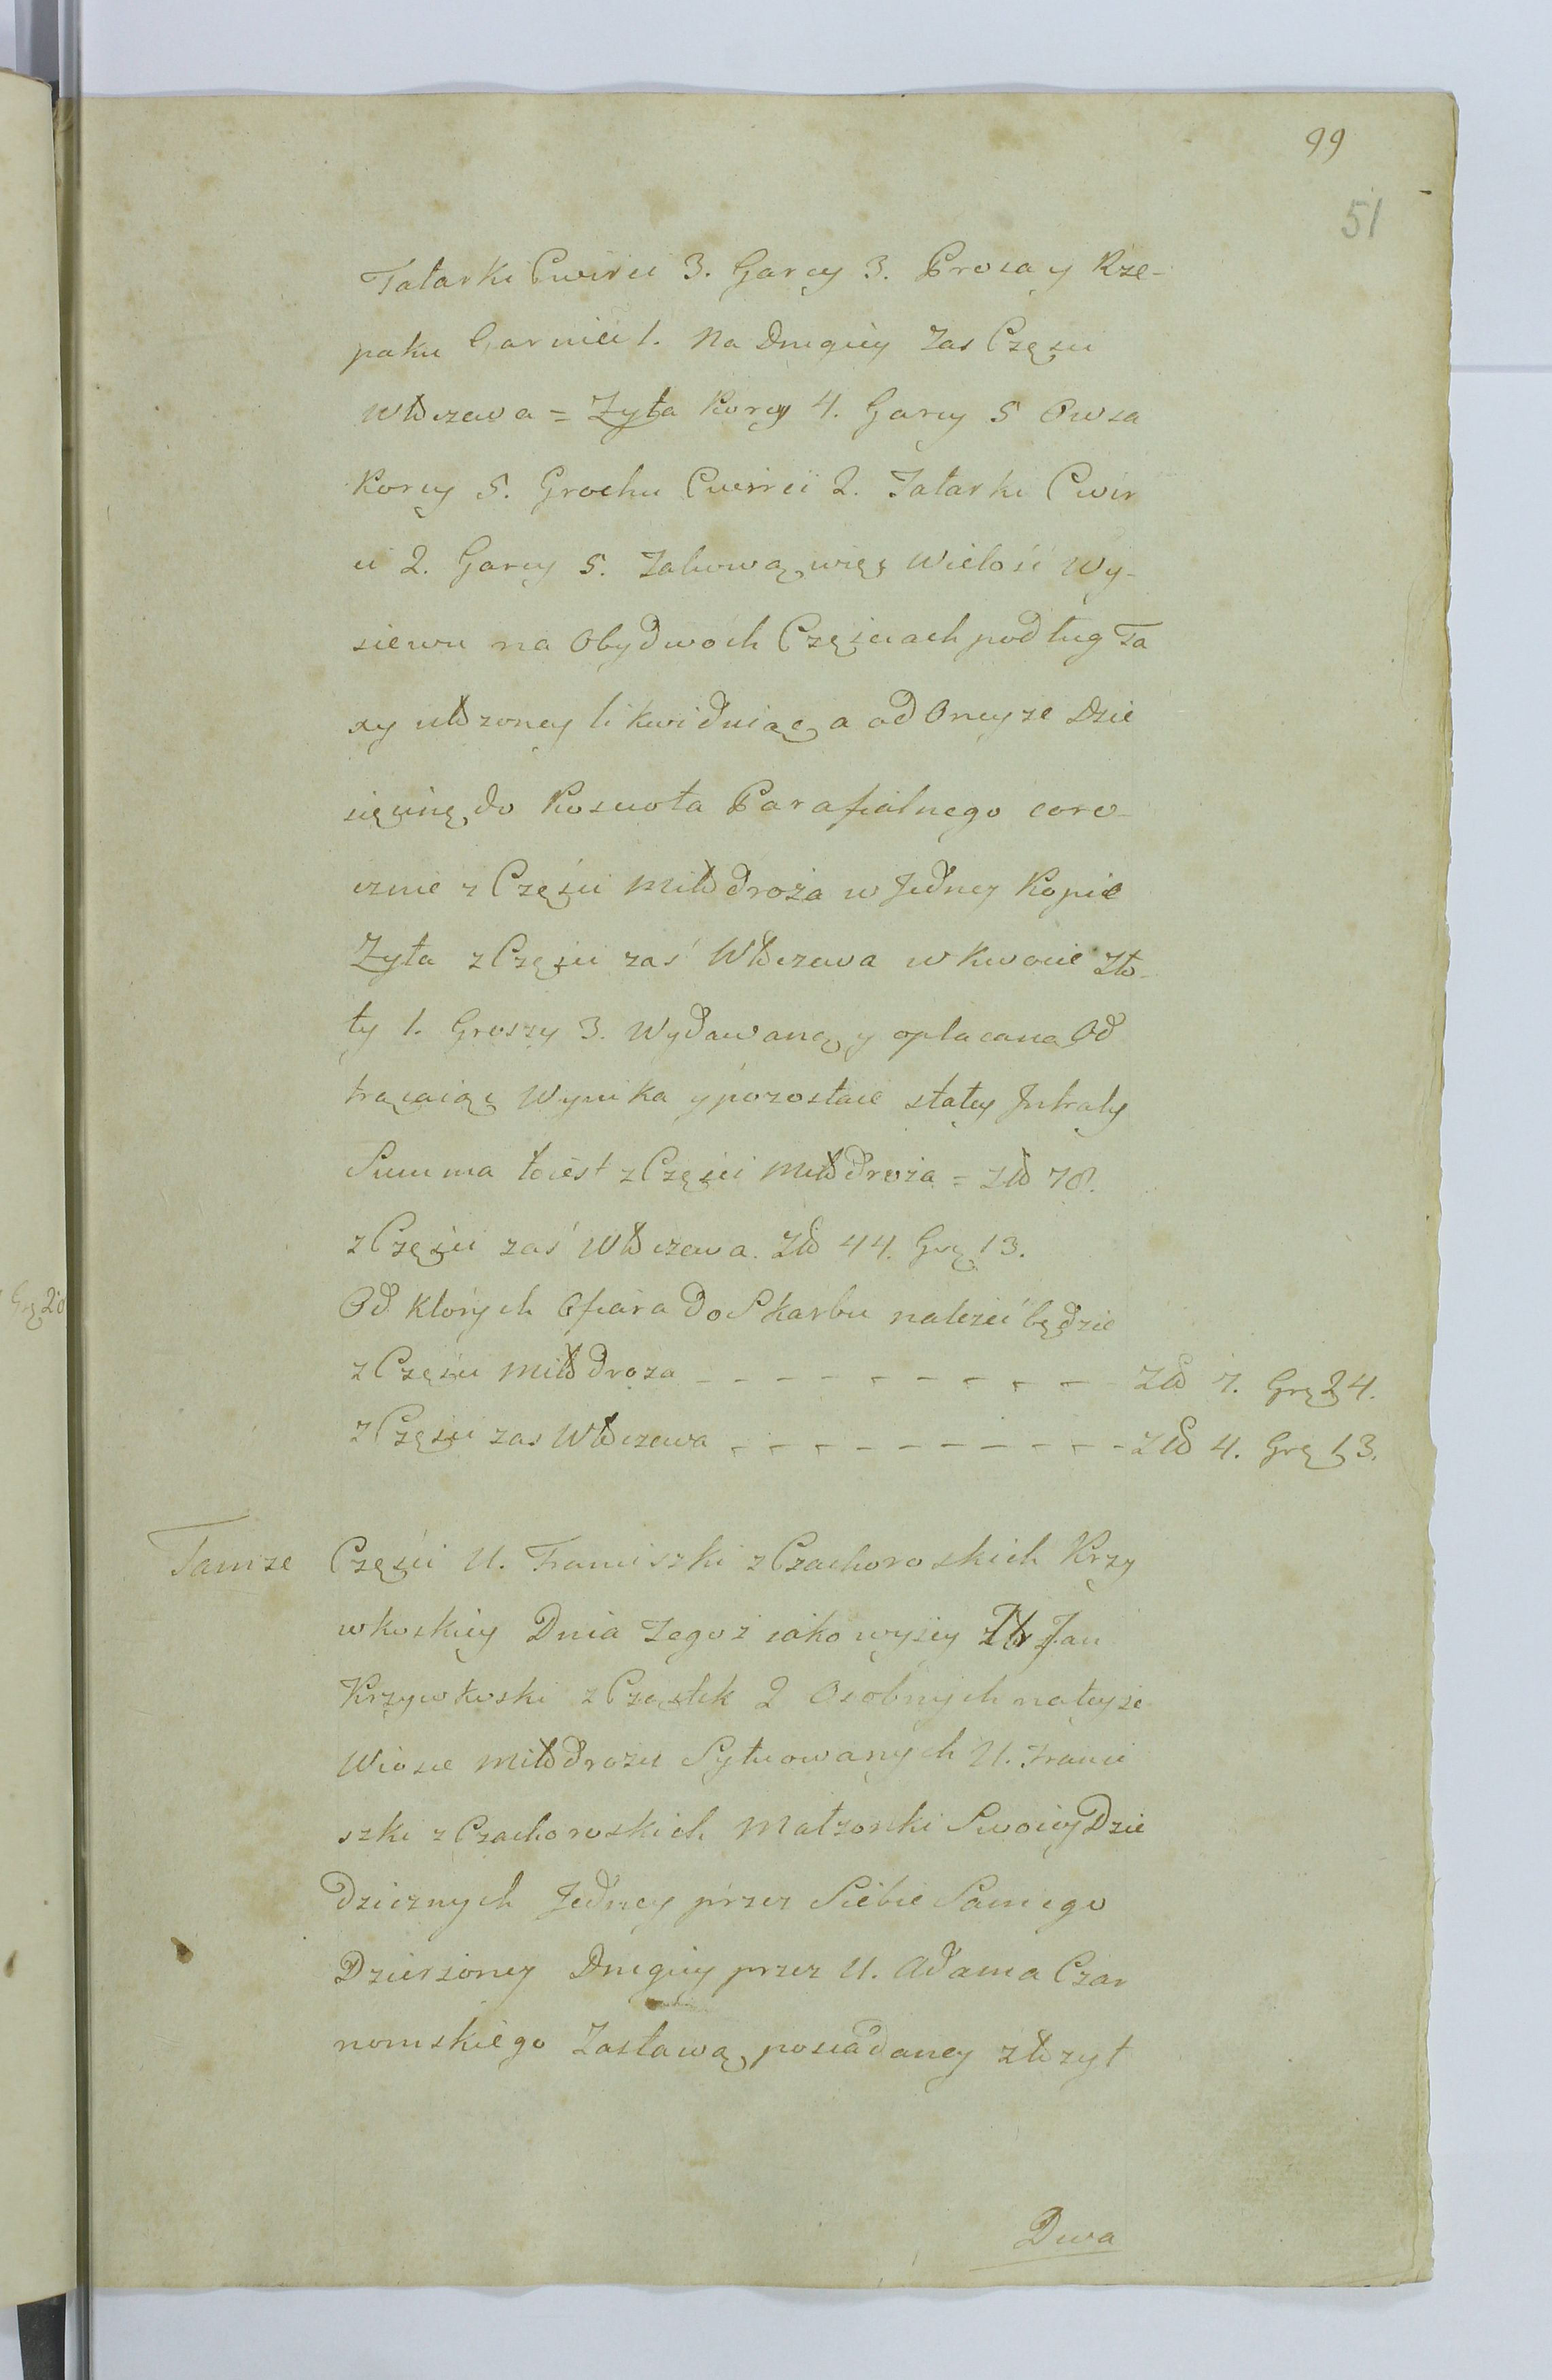 99
51
Tatarki Cwirci 3. Garcy 3. Prosa y Rze-
paku Garniec 1. Na Drugiey zas Części
Włoczewa = Zyta Korcy 4. Garcy 5 Owsa
Korcy 5. Grochu Cwirci 2. Tatarki Cwir
ci 2. Garcy 5. Takową więc Wielość Wy-
siewu na Obydwoch Częściach podług Ta
xy ułożoney likwiduiąc a od Oneyze Dzie
sięcinę do Koscioła Parafialnego coro-
cznie z Części Miłodroża w Jedney Kopie
Zyta z Części zaś Włoczewa w Kwocie Zło-
ty 1. Groszy 3. Wydawaną y opłacaną Od
trącaiąc Wynika y pozostaie stałey Intraty
Summa toiest z Części Miłodroża = Zło 78.
z Części zaś Włoczewa. Zło 44. Grę 13.
Od których Ofiara Do Skarbu należeć będzie
z Części Miłodroża - - - - - - - - - - Zło 7. Grę 24.
z Części zas Włoczewa - - - - - - - - - - Zło 4. Grę 13.
Tamze
Części U. Franciszki z Czachoroskich Krzy
wkoskiey Dnia Tegoż iako wyżey Jan
Krzywkoski z Cząstek 2 Osobnych na teyże
Wiosce Miłodrożu Sytuowanych U. Franci
szki z Czachoroskich Małzonki Swoiey Dzie
Dzicznych Jedney przez Siebie Samego
Dzierżoney Drugiey przez U. Adama Czar
nomskiego Zastawą posiadaney złożył
Dwa
Grę 20